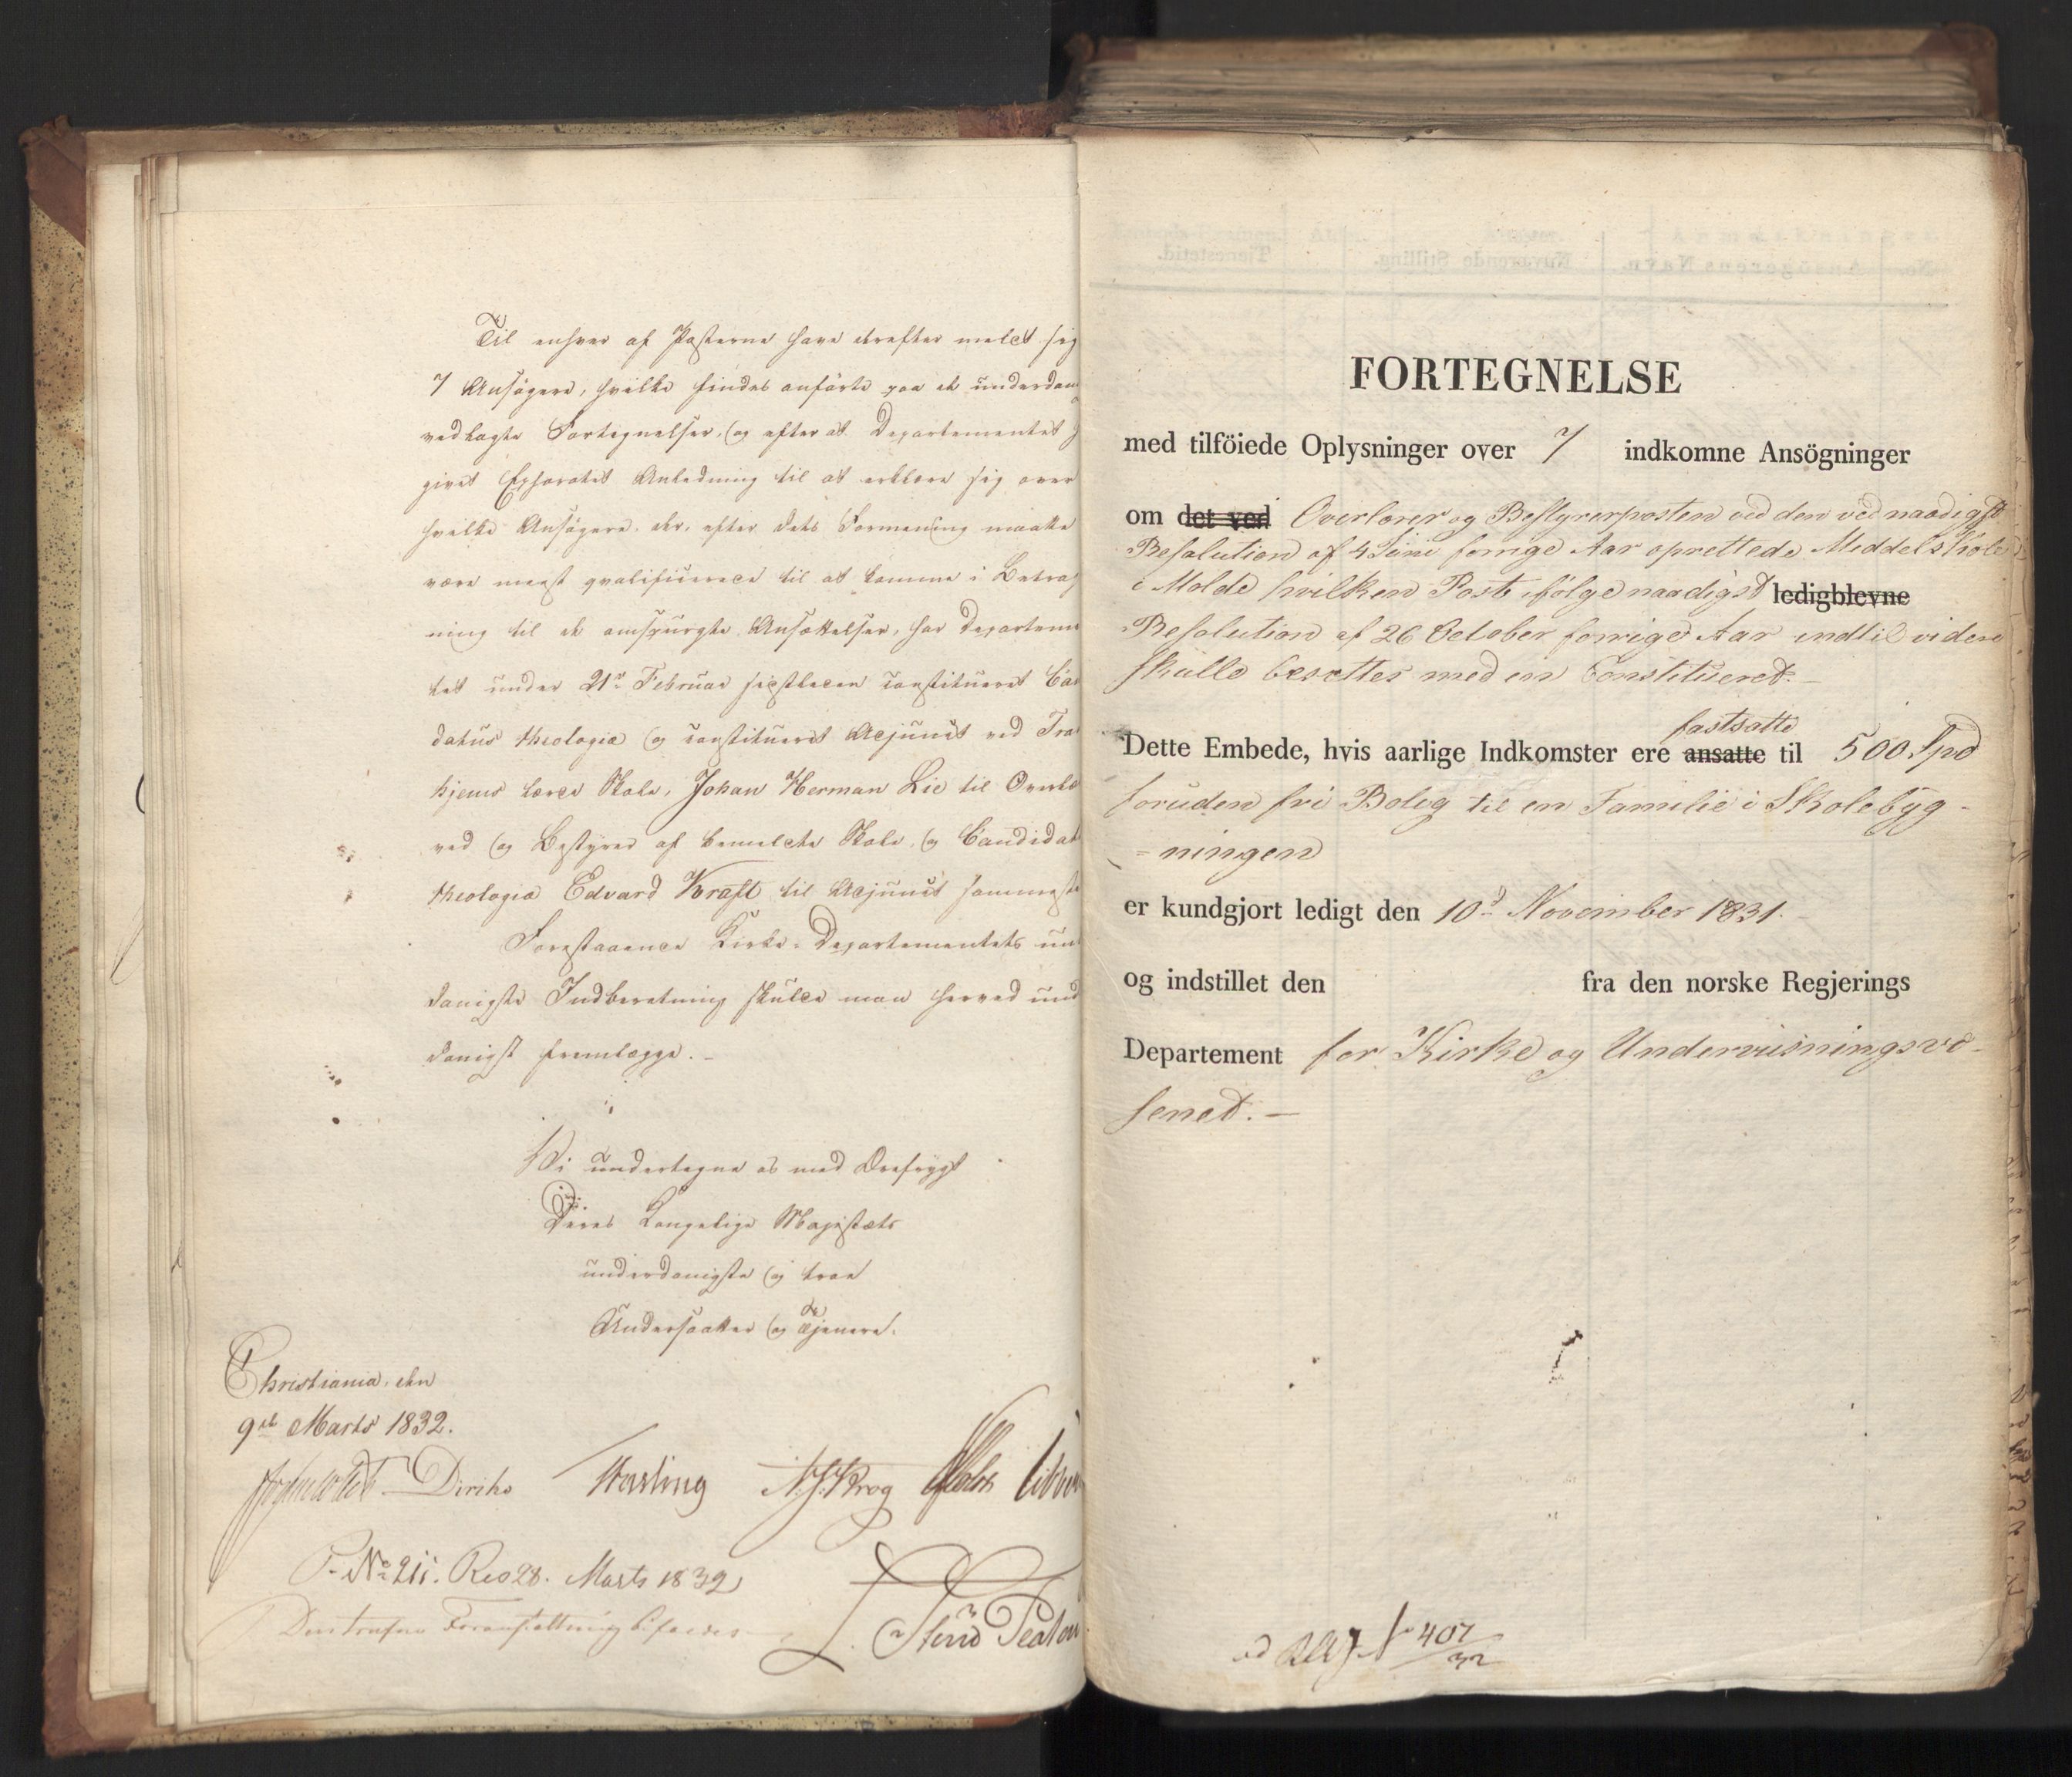 Til enhver af Posterne have derefter meldt sig
7 Ansøgere, hvilke findes anførte paa de underdan
vedlagte Fortegnelser, og efter at Departementet
givet Ephoratet Anledning til at erklære sig over
hvilke Ansøgere, der, efter dets Formening maatte
være meest qvalificerede til at komme i Betrag
ning til de omspurgte Ansættelser, har Departemen
tet under 21de Februar sidstleden constitueret Can
datus theologiæ og constitueret Adjunct ved Tron
hjems lærde Skole, Johan Herman Lie til Overlæ
ved og Bestyrer af bemeldte Skole, og Candidat
theologiæ Edvard Kraft til Adjunct sammest
Forestaaende Kirke-Departementets un
danigste Indberetning skulde man herved und
danigst fremlægge. –
Vi undertegne os med Ærefrygt
Deres Kongelige Majestæts
underdanigste og troe
Undersaatter og Tjenere.
Christiania, den
9de Marts 1832.
Diriks N. J. Krog
P. No 211. Res 28. Marts 1832
FORTEGNELSE
med tilföiede Oplysninger over 7 indkomne Ansögninger
om det ved Overlærer og Bestyrerposten ved den ved naadigst
Resolution af 4 Juni forrige Aar oprettede Middelskole
i Molde hvilken Post ifølge naadigst ledigblevne
Resolution af 26 October forrige Aar indtil videre
skulle besættes med en Constitueret. –
fastsatte
Dette Embede, hvis aarlige Indkomster ere ansatte til 500 Spd
foruden fri Bolig til en Familie i Skolebyg-
-ningen
er kundgjort ledigt den 10d November 1831. –
og indstillet den fra den norske Regjerings
Departement for Kirke og Undervisningsvæ-
senet. –
407
32